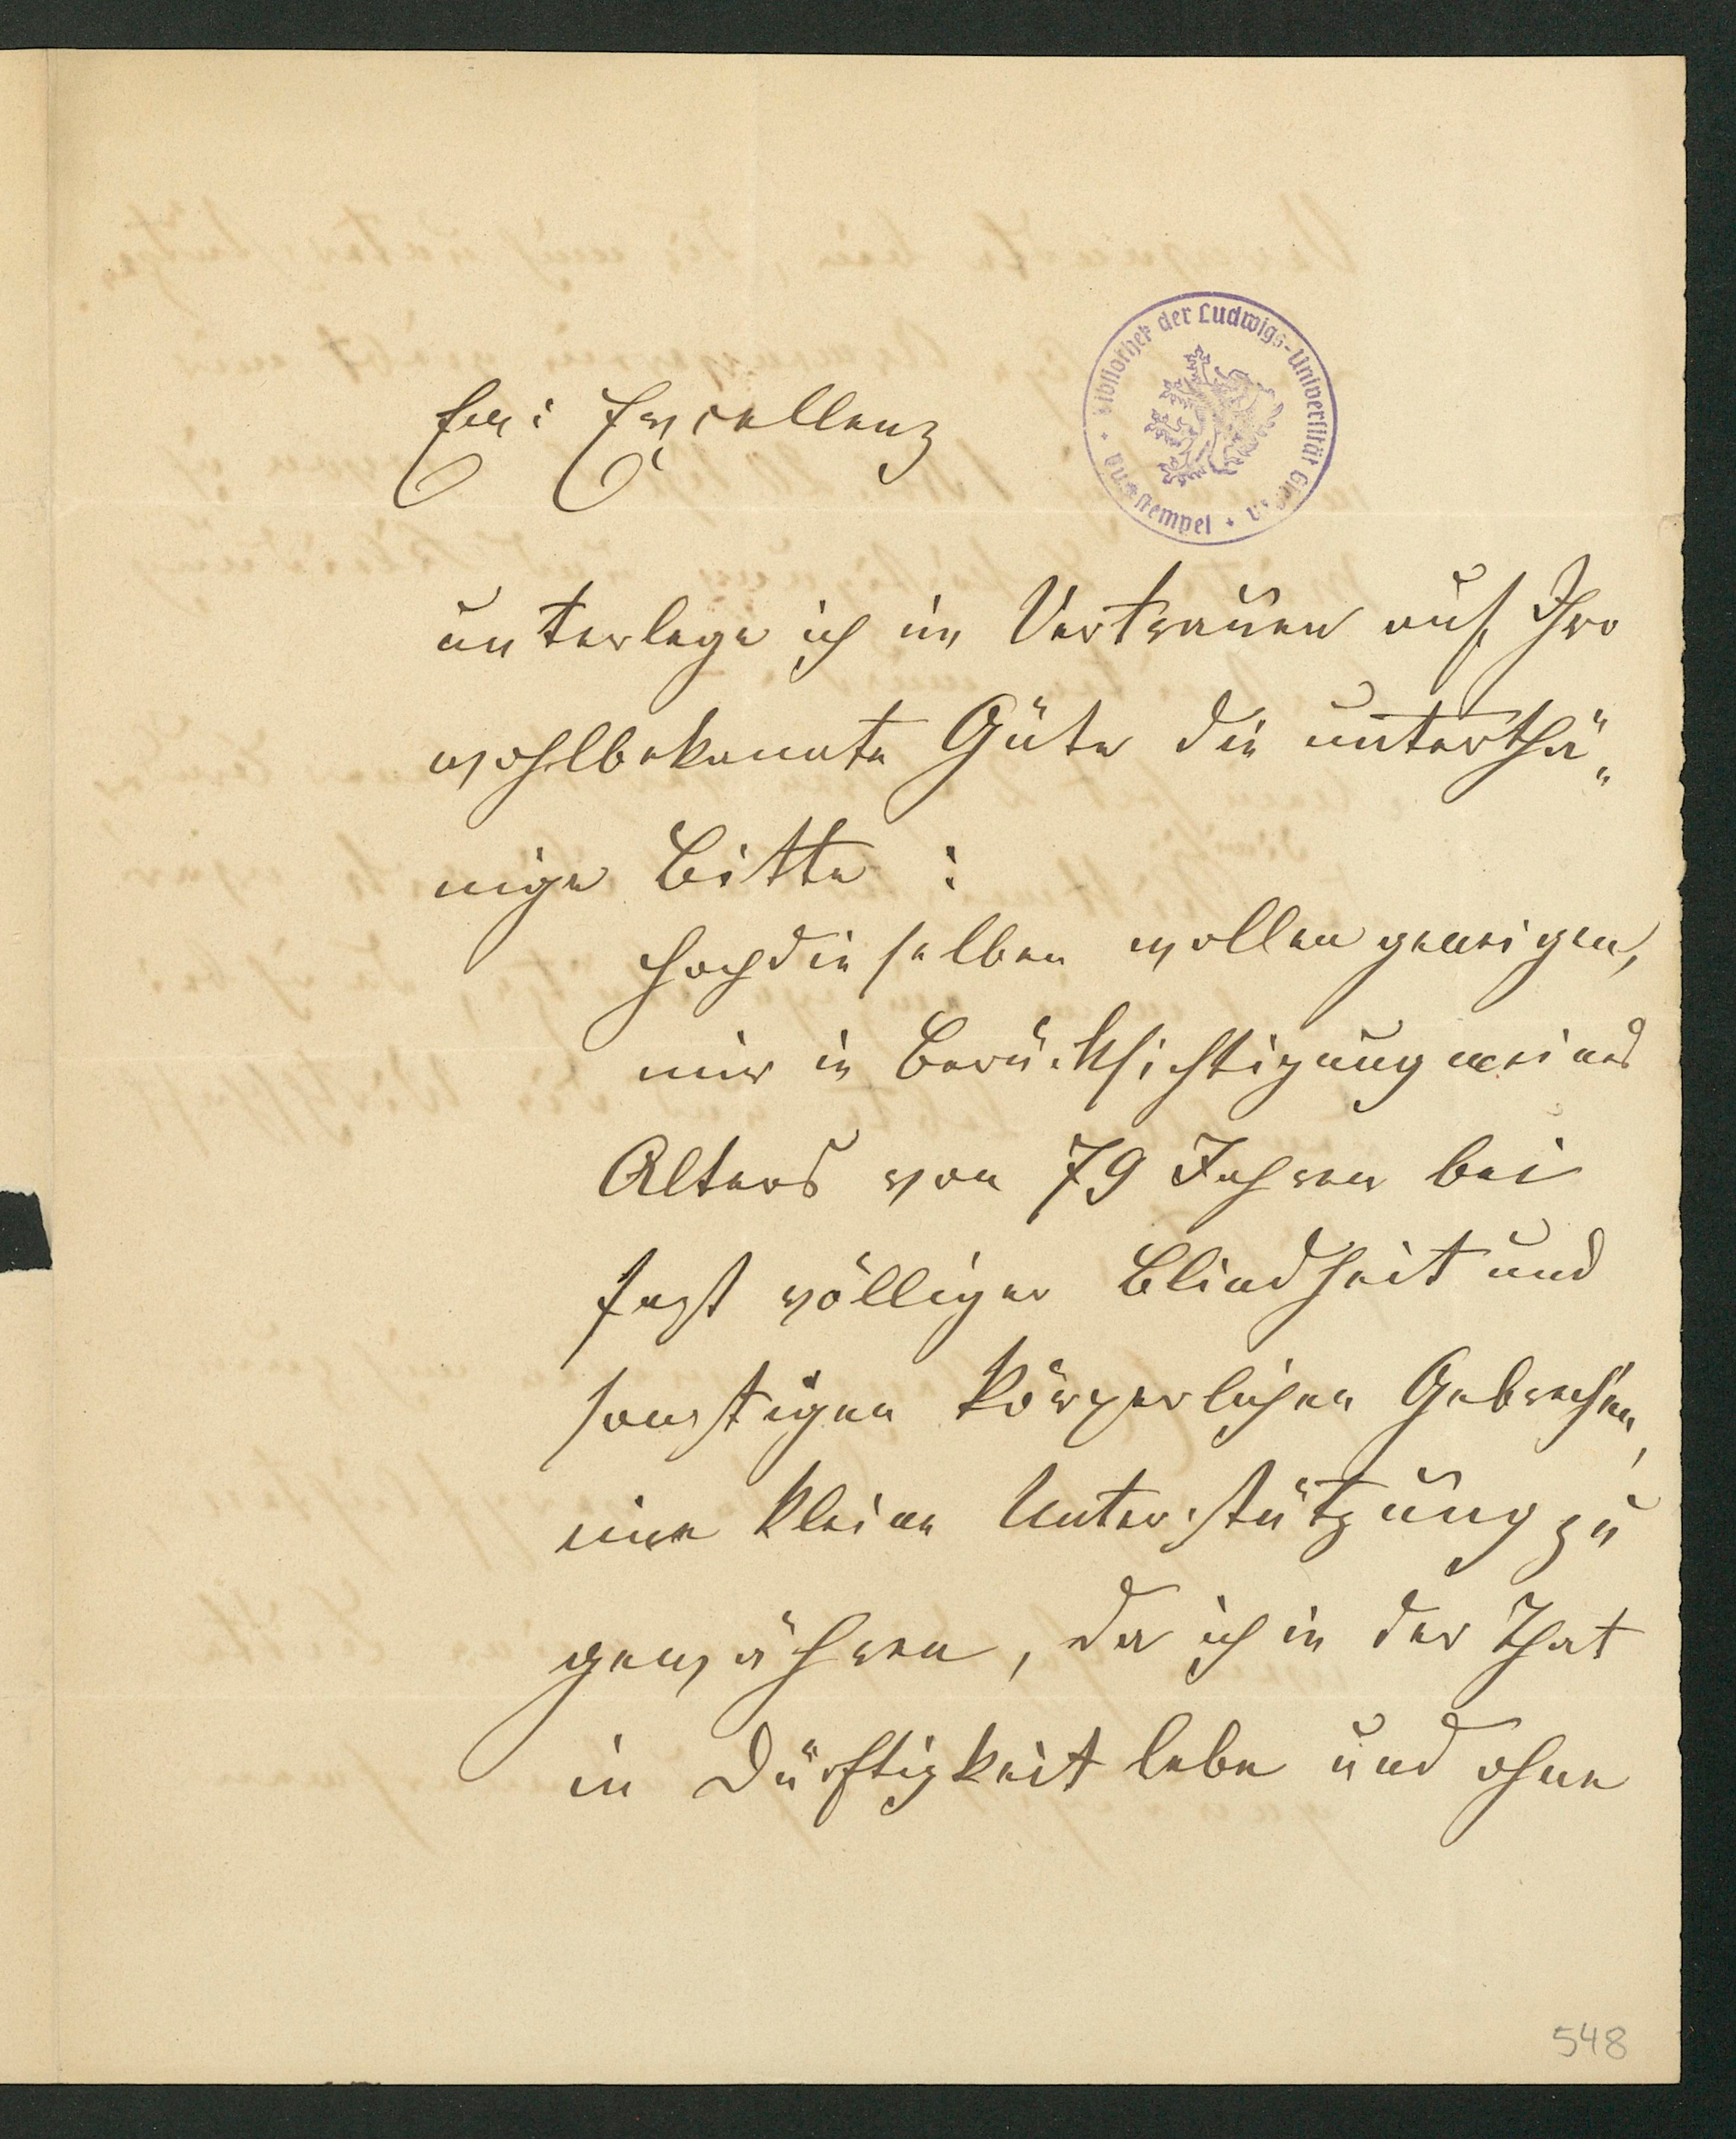 Ew: Excellenz
Bibliothek der Ludwigs-Universität Gießen
stempel
unterlege ich im Vertrauen auf Ihre
wohlbekannte Güte die unterthä„
nige Bitte :
Hochdieselben wollen geneigen,
mir in Berücksichtigung meines
Alters von 79 Jahren bei
fast völliger Blindheit und
sonstigen körperlichen Gebrechen,
eine kleine Unterstützung zu
gewähren, da ich in der That
in Dürftigkeit lebe und ohne
548